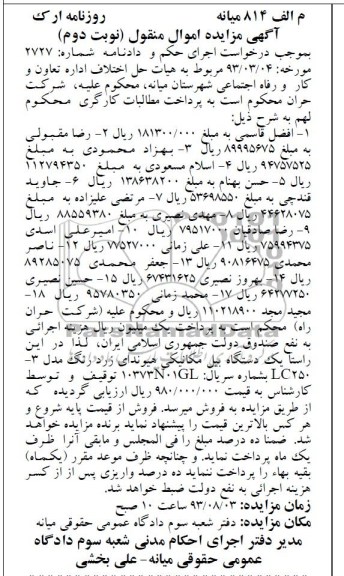 م الف ۸۱۴ میانه روزنامه ارک
آگهی مزایده اموال منقول (نوبت دوم)
بموجب درخواست اجرای حکم و دادنامه شماره: ۲۷۲۷
مورخه: ۹۳/۰۳/۰۴ مربوط به هیات حل اختلاف اداره تعاون و
کار و رفاه اجتماعی شهرستان میانه، محکوم علیه، شرکت
حران محکوم است به پرداخت مطالبات کارگری محکوم
لهم به شرح ذیل:
۱- افضل قاسمی به مبلغ ۱۸۱۳۰۰/۰۰۰ ریال ۲- رضا مقبولی
به مبلغ ۸۹۹۹۵۶۷۵ ریال ۳- بهزاد محمودی به مبلغ
۹۴۷۵۷۵۲۵ ریال ۴- اسلام مسعودی به مبلغ ۱۱۲۷۹۴۳۵۰
ریال ۵- حسن بهنام به مبلغ ۱۳۸۶۳۸۲۰۰ ریال ۶- جاوید
قندچی به مبلغ ۵۳۶۹۸۵۵۰ ریال ۷- مرتضی علیزاده به مبلغ
۴۴۶۲۸۰۷۵ ریال ۸- مهدی نصیری به مبلغ ۸۸۵۵۹۳۸۰ ریال
۹- رضا صادقیان ۷۹۵۱۷۰۰ ریال ۱۰- امیرعلی اسدی
۷۵۹۹۴۳۷۵ ریال ۱۱- علی زمانی ۷۷۵۲۷۰۰۰ ریال ۱۲- ناصر
محمدی ۹۰۸۱۶۴۷۵ ریال ۱۳- جعفر محمدی ۸۹۲۸۵۰۷۵
ریال ۱۴- بهروز نصیری ۶۷۴۳۱۶۲۵ ریال ۱۵- حسین نصیری
۶۴۲۷۷۲۵۰ ریال ۱۷- محمد زمانی ۹۵۷۸۰۳۵۰ ریال ۱۸-
مجید مجد ۱۱۰۲۱۸۹۰۰ ریال و محکوم علیه (شرکت حران
راه) محکوم است به پرداخت یک میلیون ریال هزینه اجرائی
به نفع صندوق دولت جمهوری اسلامی ایران، لذا در این
راستا یک دستگاه بیل مکانیکی هیوندای زارد رنگ مدل ۳-
LC۲۵۰ بشماره سریال: ۱۰۳۷۳N۰۱GL توقیف و توسط
کارشناس به قیمت ۹۸۰/۰۰۰/۰۰۰ ریال ارزیابی گردیده که
از طریق مزایده به فروش میرسد. فروش از قیمت پایه شروع و
هر کس بالاترین قیمت را پیشنهاد نماید برنده مزایده خواهد
شد. ضمنا ده درصد مبلغ را فی المجلس و مابقی آنرا ظرف
یک ماه پرداخت نماید. و چنانچه ظرف موعد مقرر (یکماه)
بقیه بهاء را پرداخت ننماید ده درصد واریزی پس از از کسر
هزینه اجرائی به نفع دولت ضبط خواهد شد.
زمان مزایده: ۹۳/۰۸/۰۳ ساعت ۱۰ صبح
مکان مزایده: دفتر شعبه سوم دادگاه عمومی حقوقی میانه
مدیر دفتر اجرای احکام مدنی شعبه سوم دادگاه
عمومی حقوقی میانه- علی بخشی